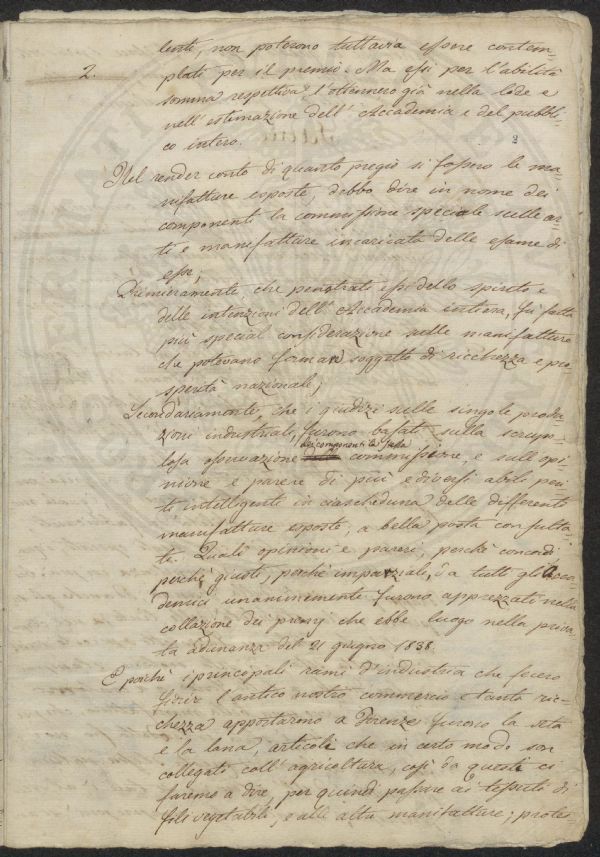 lenti, non poterono tuttavia essere contem-
2. plati per il premio. Ma essi per l'abilità
somma respettiva l'ottennero già nella lode e
nell'estimazione dell'Accademia e del pubbli-
co intero.
2
Nel render conto di quanto pregio si fossero le ma-
nifatture esposte, debbo dire in nome dei
componenti la commissione speciale sulle ar-
ti e manifatture incaricata delle esame di
esse;
Primieramente, che penetrati essi dello spirito e
delle intenzioni dell'Accademia intiera, fu fatta
più special considerazione sulle manifatture
che potevano formar soggetto di ricchezza e pro-
sperità nazionale;
Secondariamente, che i giudizi sulle singole produ-
zioni industriali, furono basati sulla scrupo-
dei componenti la stessa
losa osservazione commissione, e sull'opi-
nione e parere di più e diversi abili peri-
ti intelligenti in ciascheduna delle differenti
manifatture esposte, a bella posta consulta-
te. Quali opinioni e pareri, perchè concordi
perchè giusti, perchè imparziali, da tutti gli Acca-
demici unanimemente furono apprezzati nella
collazione dei premj che ebbe luogo nella priva-
ta adunanza del 21 giugno 1838.
E poichè i principali rami d'industria che fecero
fiorir l'antico nostro commercio e tanta ric-
chezza apportarono a Firenze furono la seta
e la lana, articoli che in certo modo son
collegati coll'agricoltura, così da questi ci
faremo a dire, per quindi passare ai tessuti di
fili vegetabili, e alle altre manifatture; protes